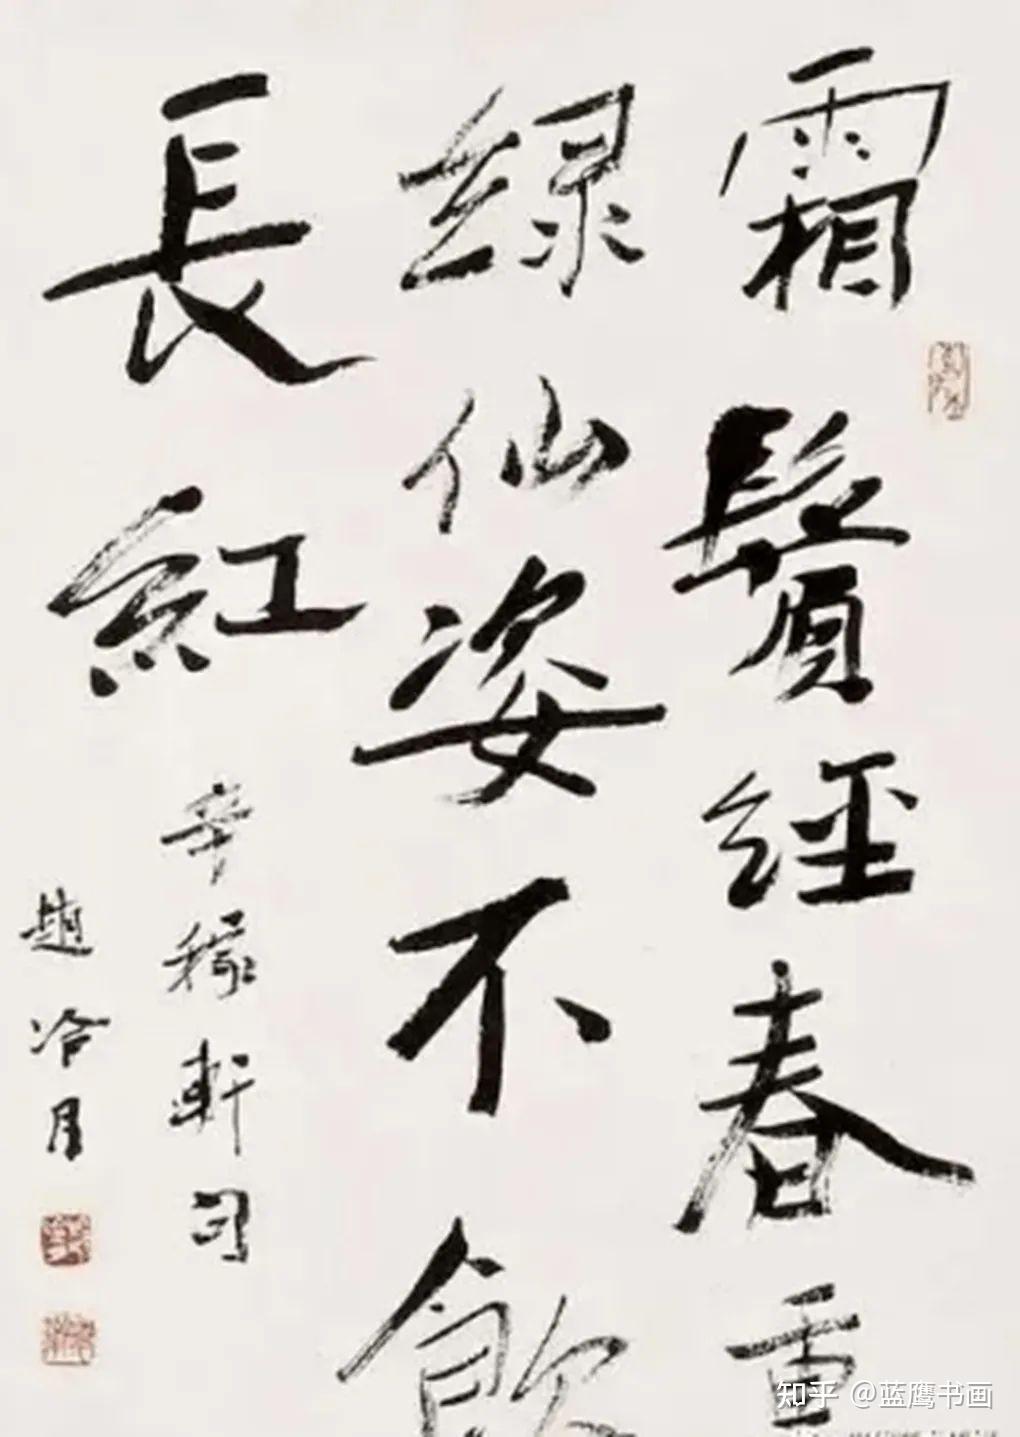 霜鬢經春重
綠仙姿不飲
長紅
辛稼軒句
趙冷月
知乎 @蓝鹰书画